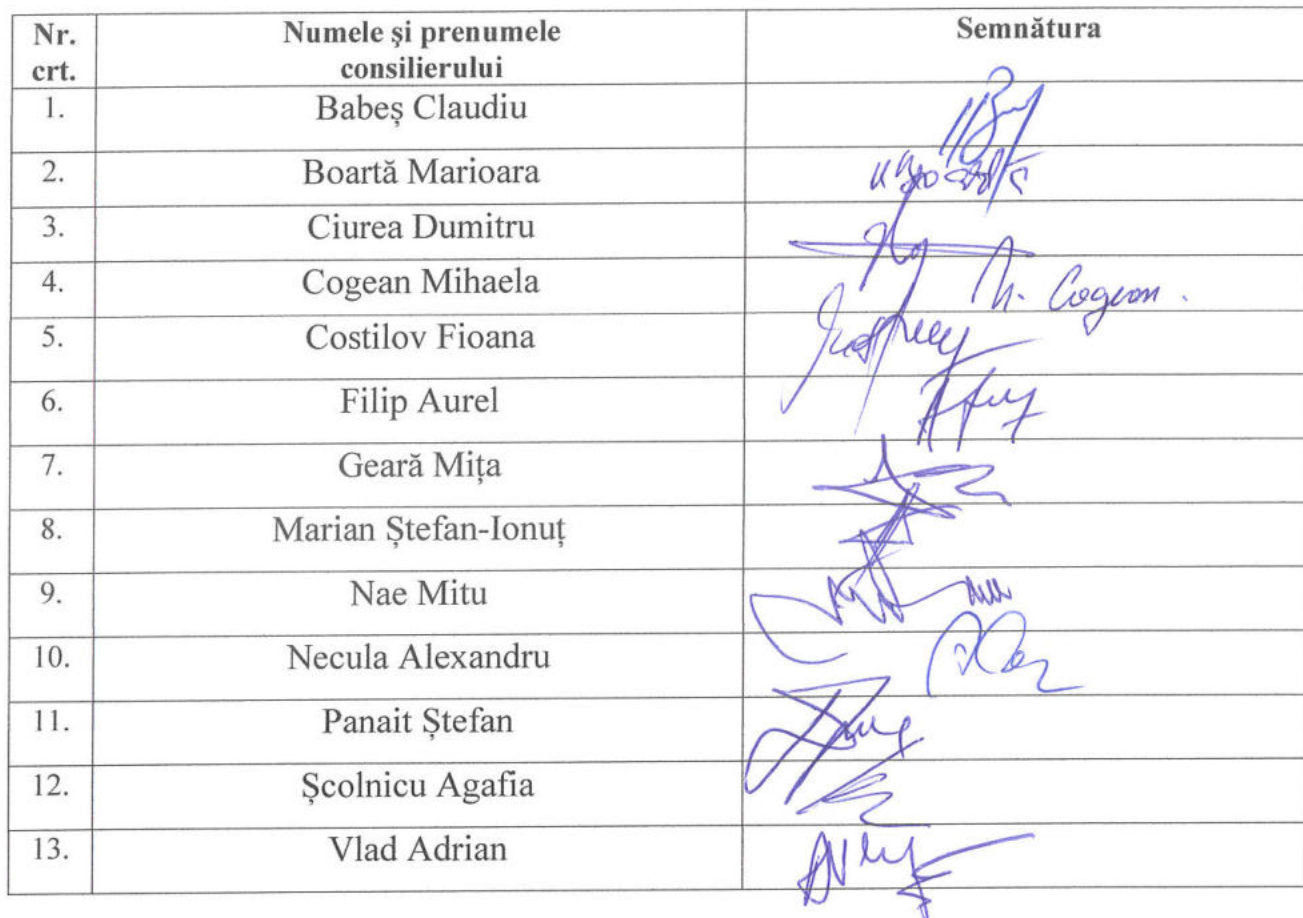 Nr. crt. Numele și prenumele consilierului Semnătura
1. Babeș Claudiu
2. Boartă Marioara
3. Ciurea Dumitru
4. Cogean Mihaela M. Cogean.
5. Costilov Fioana
6. Filip Aurel
7. Geară Mița
8. Marian Ștefan-Ionuț
9. Nae Mitu
10. Necula Alexandru
11. Panait Ștefan
12. Școlnicu Agafia
13. Vlad Adrian